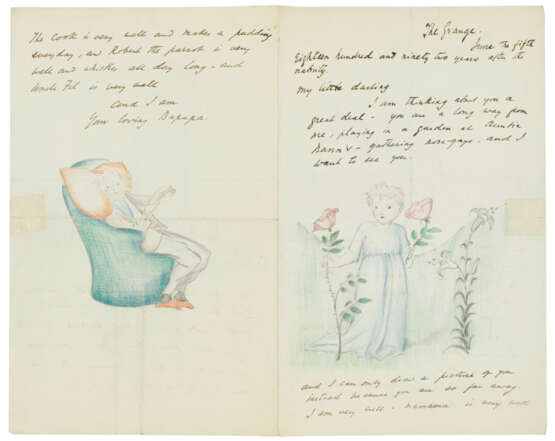 The Grange.
June the fifth
Eighteen hundred and ninety two years after the
nativity.
My little darling
I am thinking about you a
great deal - you are a long way from
me, playing in a garden at Auntie
gathering nose-gays. and I
want to see you.
and I can only draw a picture of you
instead because you are so far away
I am very well. mamama is very well
The cook is very well and makes a pudding
everyday, an Robert the parrot is very
well and whistles all day long - and
Uncle Phil is very well
and I am
Your loving Bapapa.